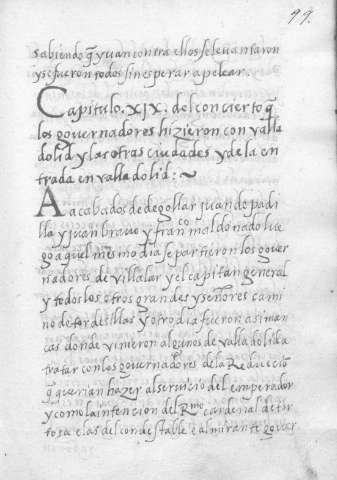 99.
sabiendo q̃ yuan contra ellos se levantaron
y se fueron todos sin esperar a pelear.
Capitulo. XIX. del concierto q̃
los governadores hizieron con valla
dolid y las otras ciudades y de la en
trada en valladolid: ~
Acabados de degollar juan de padi
lla y juan bravo y franco maldonado lue
go aquel mesmo dia se partieron los gover
nadores de villalar y el capitan general
y todos los otros grandes y señores cami
no de tordesillas y otro dia fueron a siman
cas donde vinieron algunos de valladolid a
tratar con los governadores de la Reducciõ
q̃ querian hazer al servicio del emperador
y como la intencion del Rmo cardenal de tor
tosa e las del condestable e almirante gover